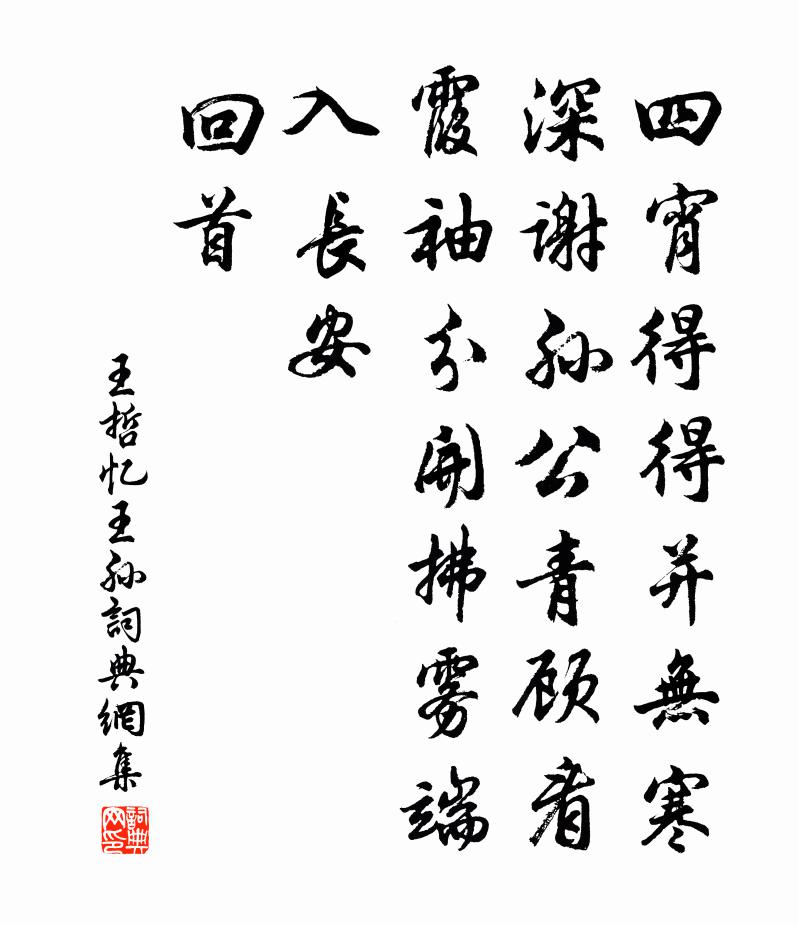 四宵得得并無寒
深謝孫公青顾看
霞袖分開拂雾端
入長安
回首
王哲忆王孫詞典網集
詞典网印